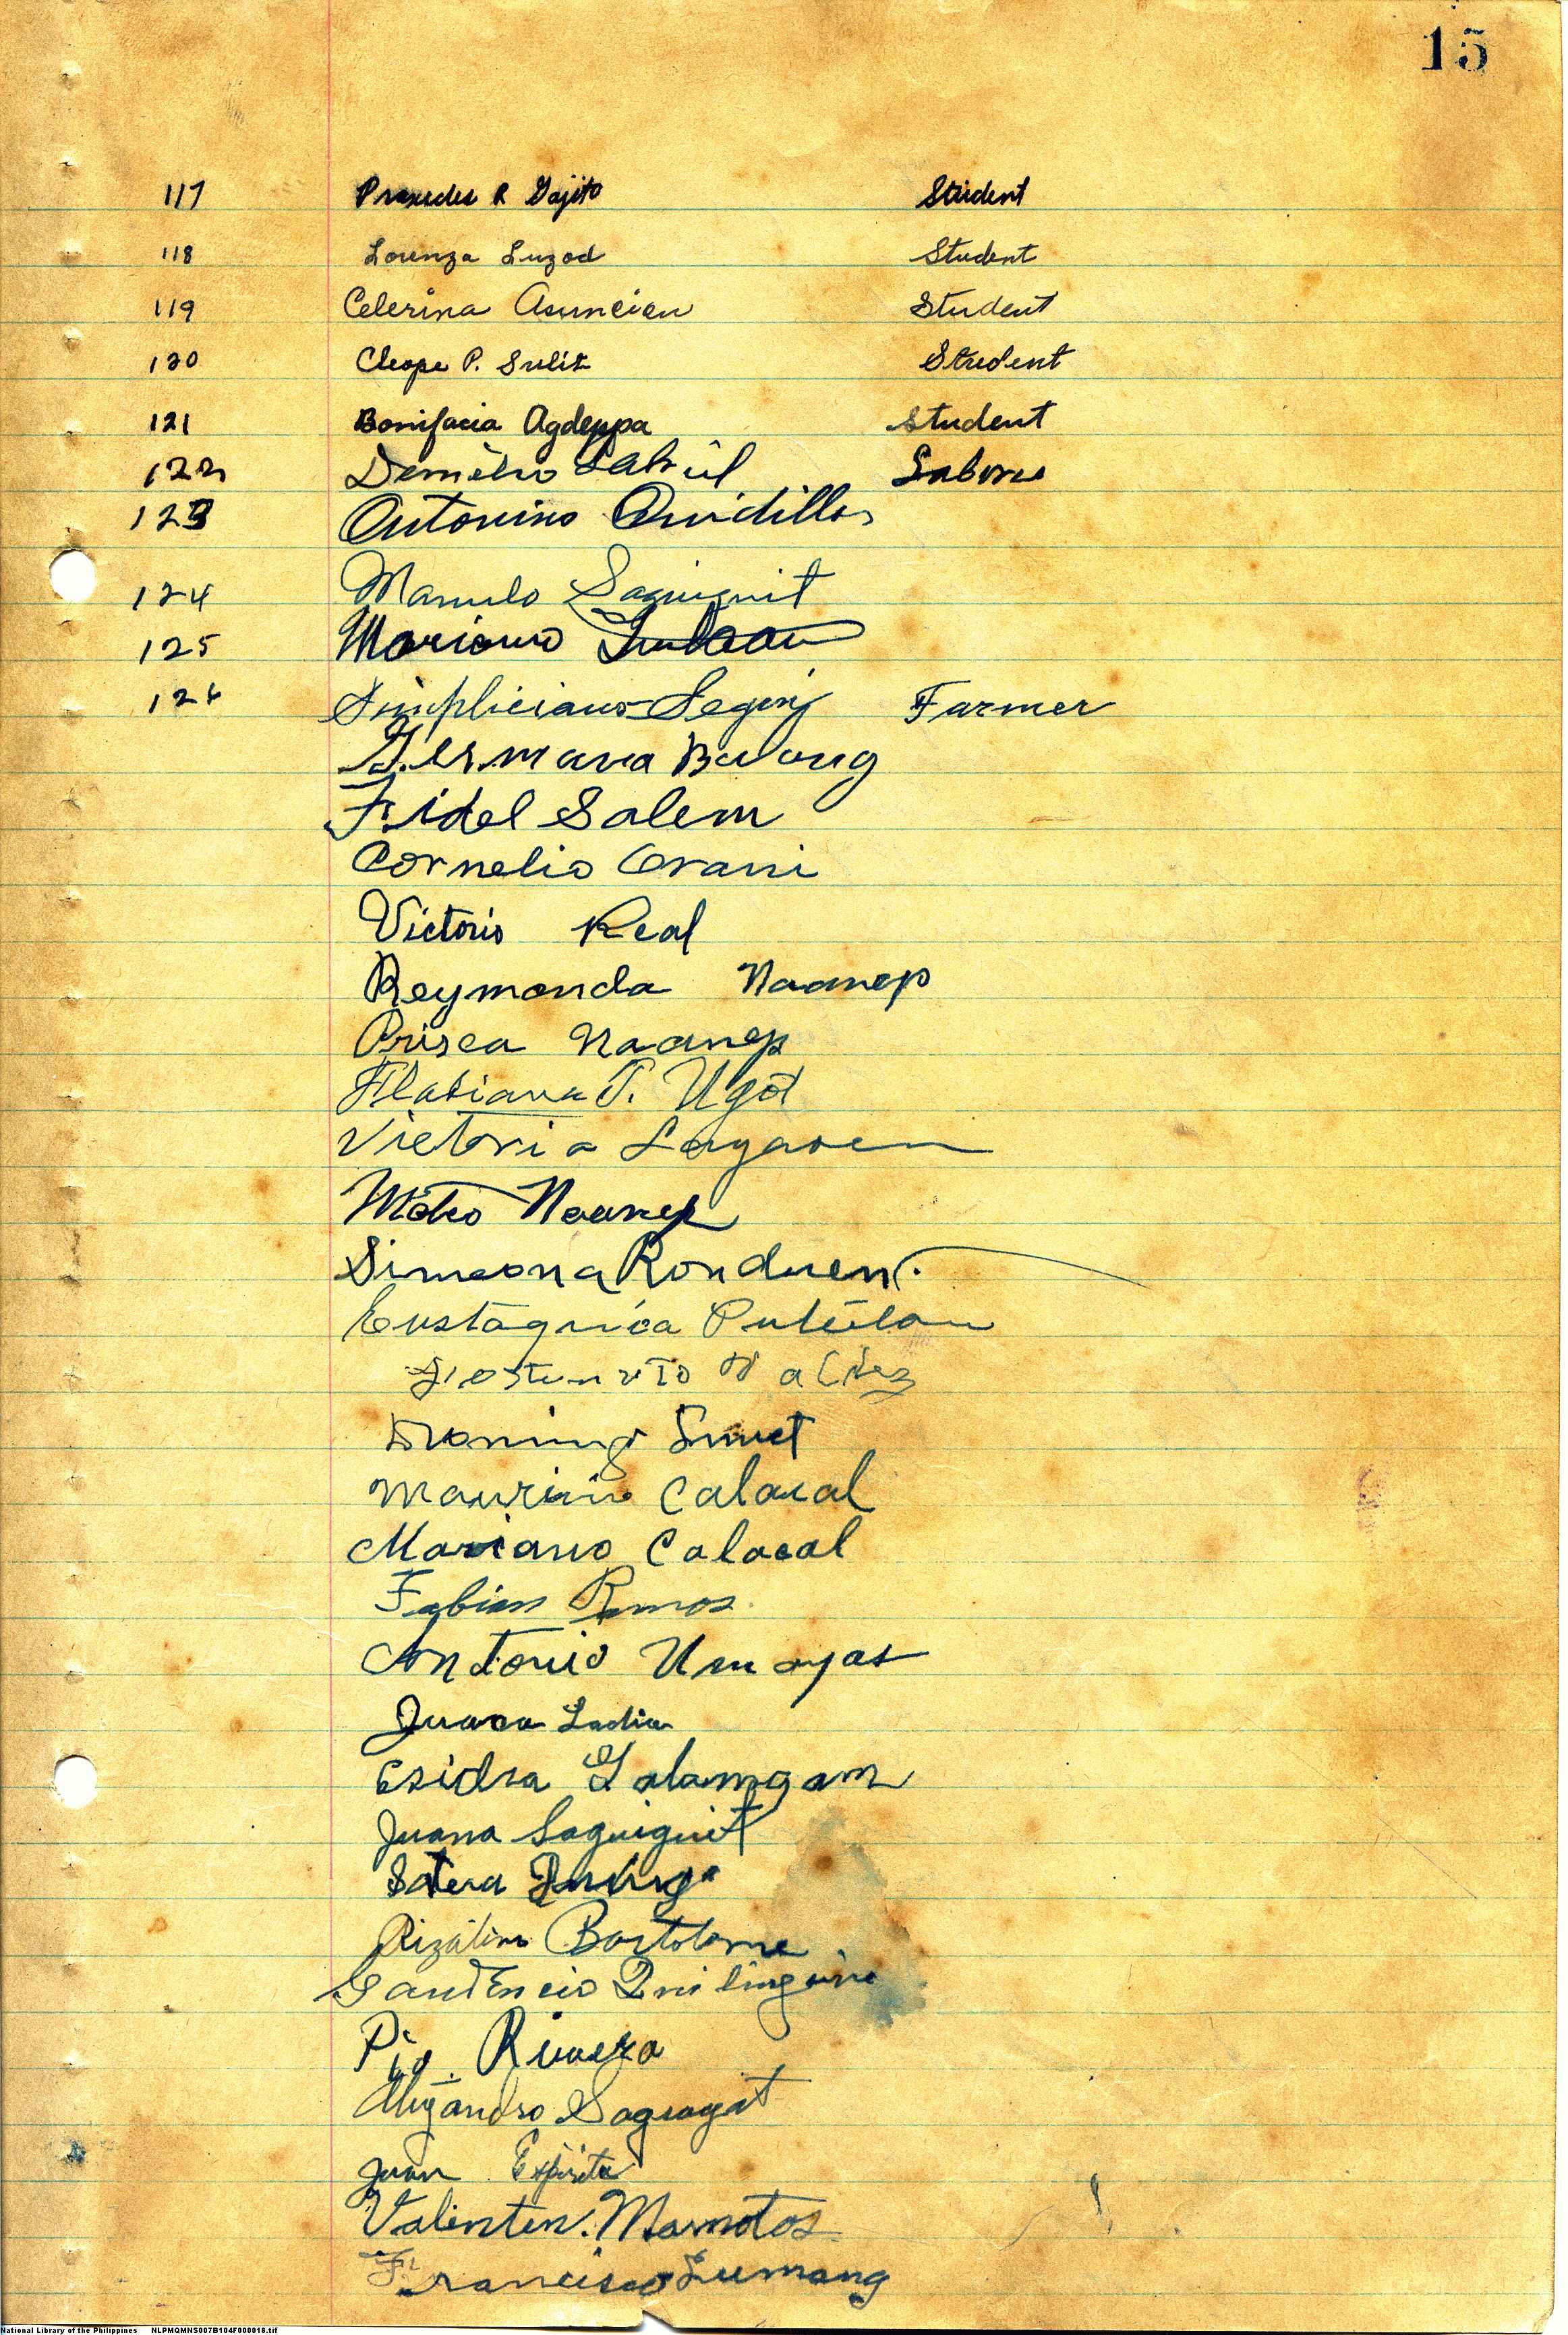 15
117 Praxedes R Gajito Student
118 Lorenza Luzod Student
119 Celerina Asuncion Student
120 Cleope P. Sulit Student
121 Bonifacia Agdeppa Student
122 Demetrio Labore
123 Antonino
124 Manuel Saguiguit
125 Mariano
126 Simpliciano Farmer
Germana
Fidel Salem
Cornelio Orani
Victorio Real
Reymonda Naanep
Prisca Naanep
Flabiana T. Ugot
Victoria Lagasen
Mateo Naanep
Simeona Ronduen.
Eustaquica
Valdez
Domingo
Mauricio Calacal
Mariano Calacal
Fabian Ramos
Antonio Umayas
Juana Ladia
Esidra Galamgam
Juana Saguiguit
Sotera
Rizalino Bartolome
Gaudencio Quilinguine
Pio Rivera
Alejandro
Juan Espirito
Valenten. Mamotos
Francisco Lumang
National Library of the Philippines NLPMQMNS007B104F000018.tif